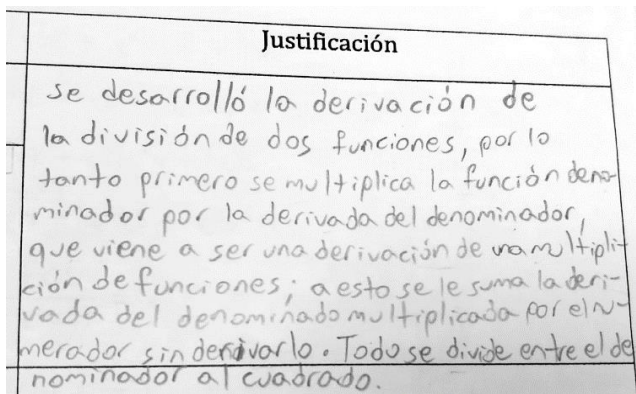 Justificación
se desarrolló la derivación de
la división de dos funciones, por lo
tanto primero se multiplica la función deno-
minador por la derivada del denominador,
que viene a ser una derivación de una multipli-
ción de funciones; a esto se le suma la deri-
vada del denominado multiplicada por el nu-
merador sin derivarlo. Todo se divide entre el de
nominador al cuadrado.